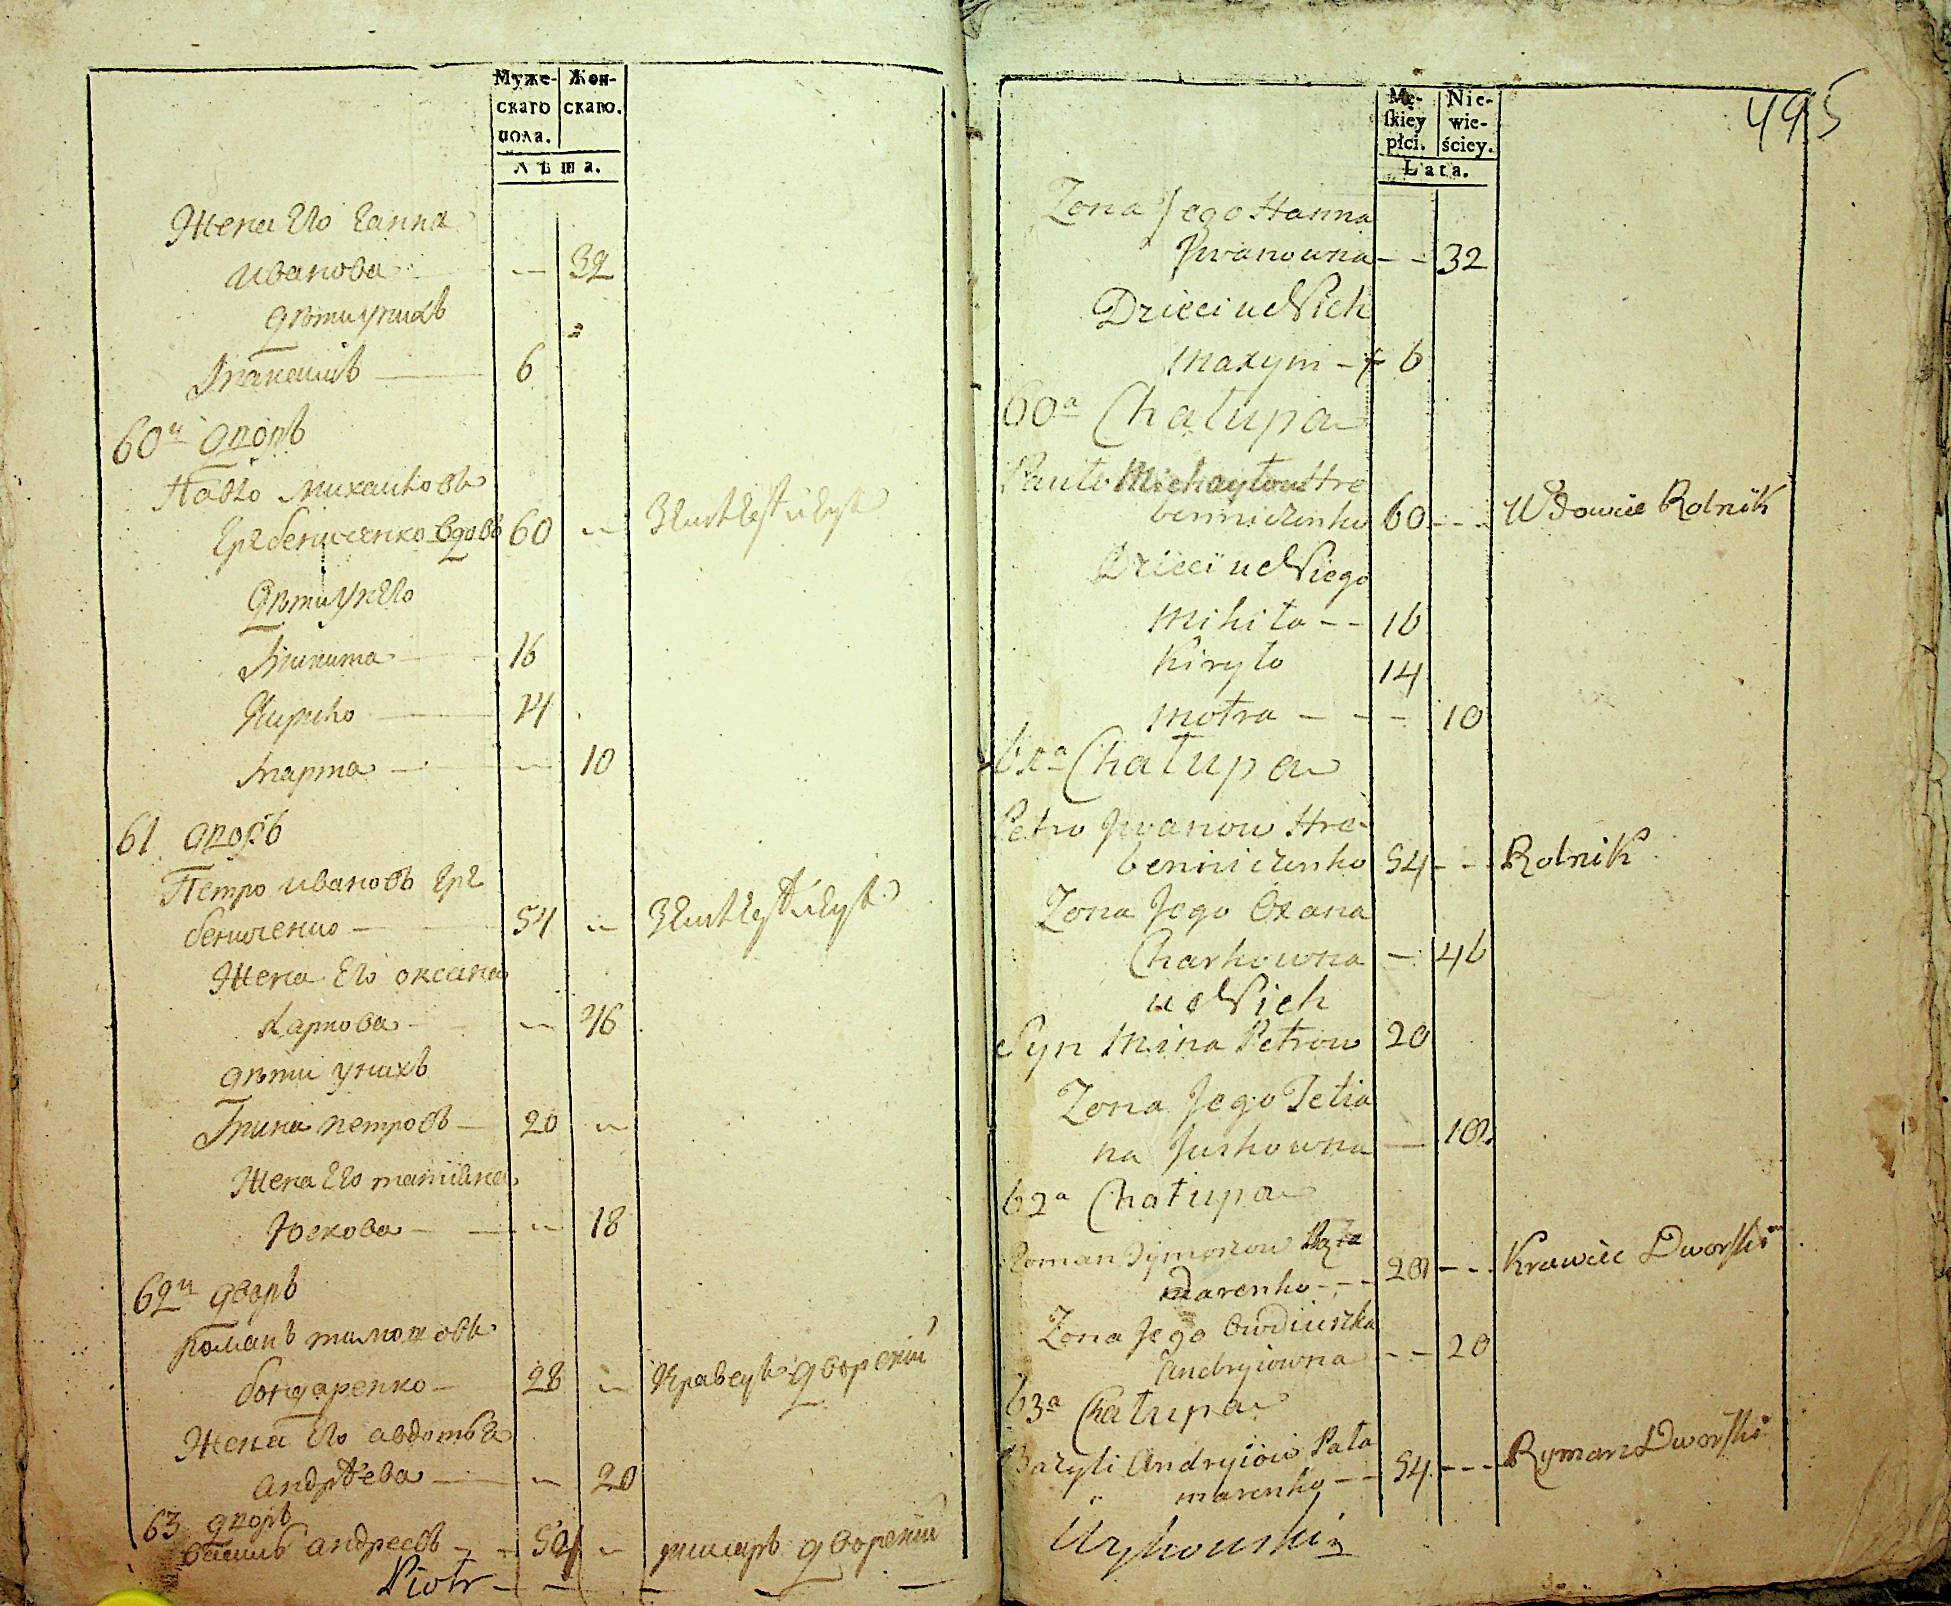 Муже-
скаго
пола.
Жен-
скаго.
Лѣта.
Жена Его Ганна
Иванова — 32
дѣти у нихъ
6
60й дворъ
Павло Михайловъ
Гребениченко вдовъ 60 —
дѣти у него
Никита 16
Кирило 14
Марта — 10
61 дворъ
Петро Ивановъ Гре
бениченко — 54 —
Жена Его оксана
Карпова — 46
дѣти у нихъ
Мина петровъ — 20 —
Жена Его татияна
Юскова — 18
62й дворъ
Романъ тимошовъ
бондаренко — 28 — Кравецъ дворский
Жена Его авдотья
Андрѣева — 20
63 дворъ
василь андреевъ — 54 — римарь дворский
Piotr
495
Mę-
skiey
płci.
Nie-
wie-
ściey.
Lata.
Zona Jego Hanna
Jwanowna - - 32
Dzieci u Nich
Maxym - 6
60a Chałupa
Pawło Michayłow Hre
benniczenko 60 - - - Wdowiec Rolnik
Dzieci u Niego
Mikita - - 16
Kiryło 14
Motra - - - 10
61a Chałupa
Petro Jwanow Hre-
benniczenko 54 - - - Rolnik
Zona Jego Oxana
Charkowna - 46
u Nich
Syn Mina Petrow 20
Zona Jego Tetia
na Juskowna — 18
62a Chałupa
Roman Tymoszow
darenko - - - 28 - - - Krawiec Dworski
Zona Jego Owdiuszka
Andryiowna - - 20
63a Chałupa
Bazyli Andryiow Pała
marenko - - 54 - - - Rymarz Dworski